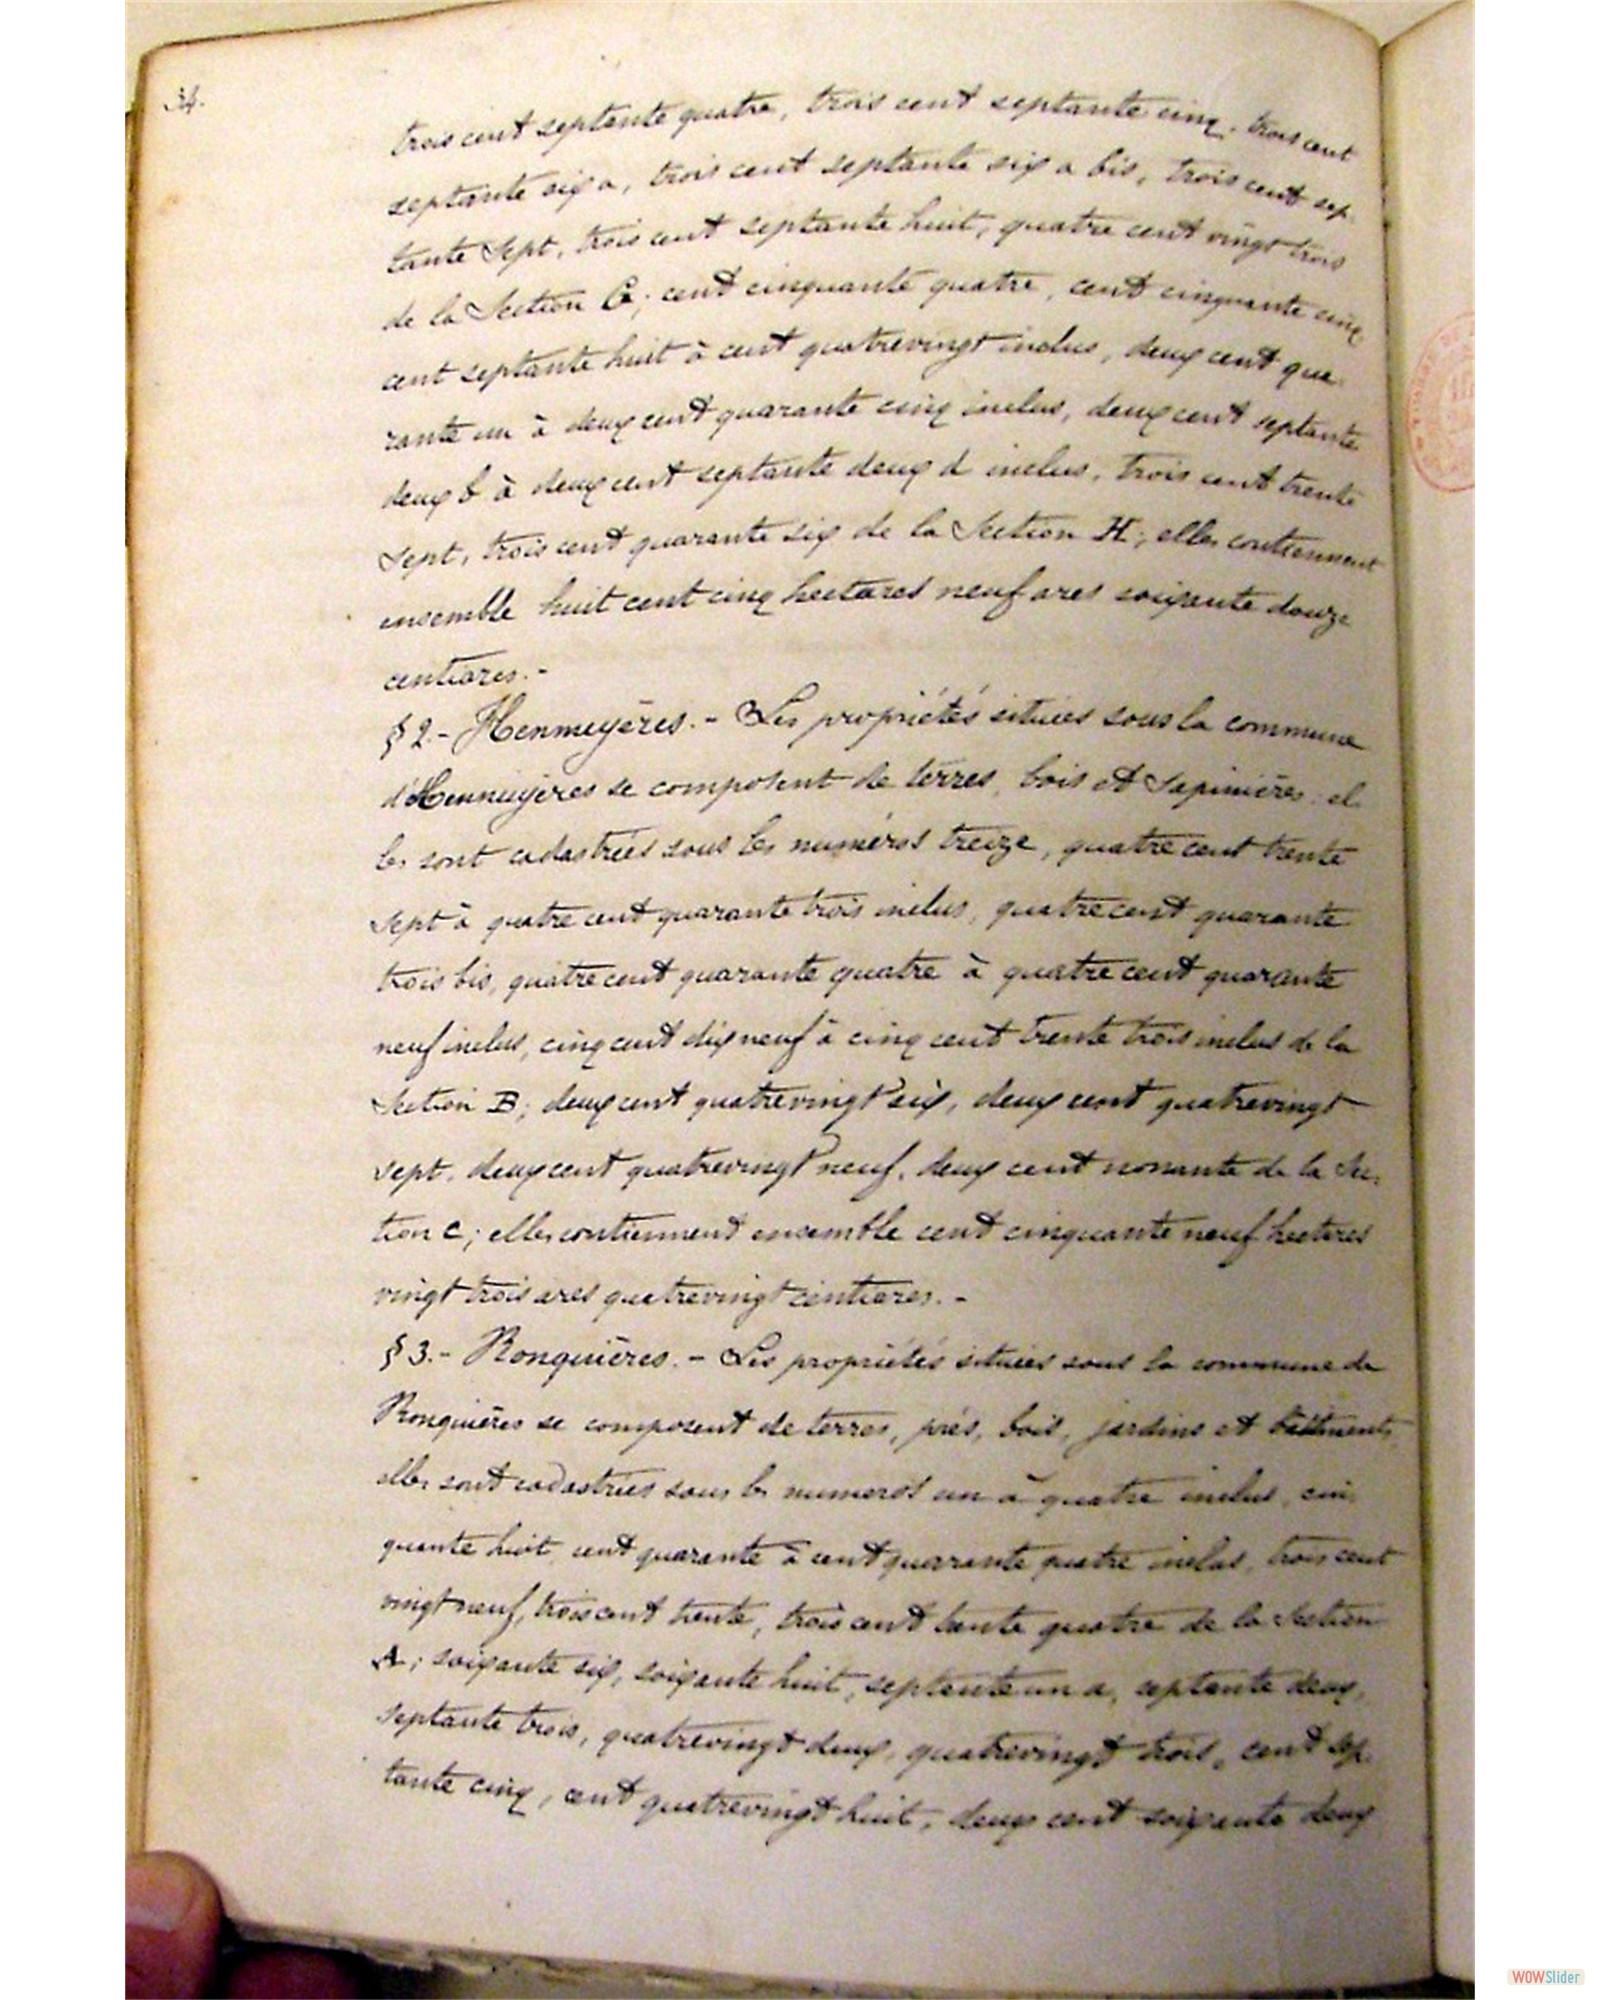 34.
trois cent septante quatre, trois cent septante cinq, trois cent
septante six a, trois cent septante six a bis, trois cent sep-
tante Sept, trois cent septante huit, quatre cent vingt trois
de la Section G; cent cinquante quatre, cent cinquante cinq,
cent septante huit à cent quatrevingt inclus, deux cent qua-
rante un à deux cent quarante cinq inclus, deux cent septante
deux b à deux cent septante deux d inclus, trois cent trente
Sept, trois cent quarante six de la Section H; elles contiennent
ensemble huit cent cinq hectares neuf ares soixante douze
centiares.-
§ 2.- Hennuyères.- Les propriétés situées sous la commune
d'Hennuyères se composent de terres, bois et Sapinières; el-
les sont cadastrées sous les numéros treize, quatre cent trente
Sept à quatre cent quarante trois inclus, quatre cent quarante
trois bis, quatre cent quarante quatre à quatre cent quarante
neuf inclus, cinq cent dix neuf à cinq cent trente trois inclus de la
Section B; deux cent quatrevingt six, deux cent quatrevingt
sept, deux cent quatrevingt neuf, deux cent nonante de la Sec-
tion C; elles contiennent ensemble cent cinquante neuf hectares
vingt trois ares quatrevingt centiares.-
§ 3.- Ronquières.- Les propriétés situées sous la commune de
Ronquières se composent de terres, prés, bois, jardins et bâtiments,
elles sont cadastrées sous les numéros un à quatre inclus, cin-
quante huit, cent quarante à cent quarante quatre inclus, trois cent
vingt neuf, trois cent trente, trois cent trente quatre de la Section
A; soixante six, soixante huit, septante un a, septante deux,
Septante trois, quatrevingt deux, quatrevingt trois, cent sep-
tante cinq, cent quatrevingt huit, deux cent soixante deux
WOWSlider